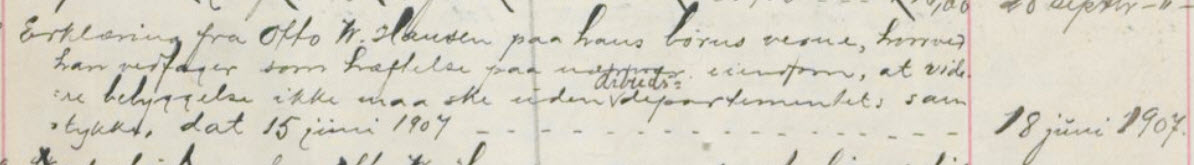 Erklæring fra Otto W. Hansen paa hans børns vegne, hvorved
han vedtager som hæftelse paa eiendom, at vide-
=re bebyggelse ikke maa ske uden arbeids= departementets sam
=tykke, dat 15 juni 1907 - - - - - - - - - - - 18 juni 1907.